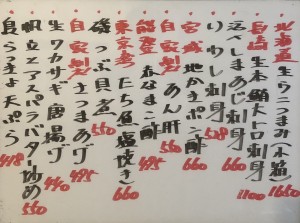 北海道 生ウニつまみ(一箱) 1650
長崎 生本鮪大トロ刺身 1100
ごんべしまあじ刺身 660
いわし刺身 528
宮城 地かきポン酢 660
自家製 あん肝 560
能登 赤なまこ酢 495
東京湾 たち魚塩焼き 660
磯つぶ貝煮 550
自家製 さつまあげ 495
生ワカサギ唐揚げ 440
帆立とアスパラバター炒め 550
島らっきょ天ぷら 498